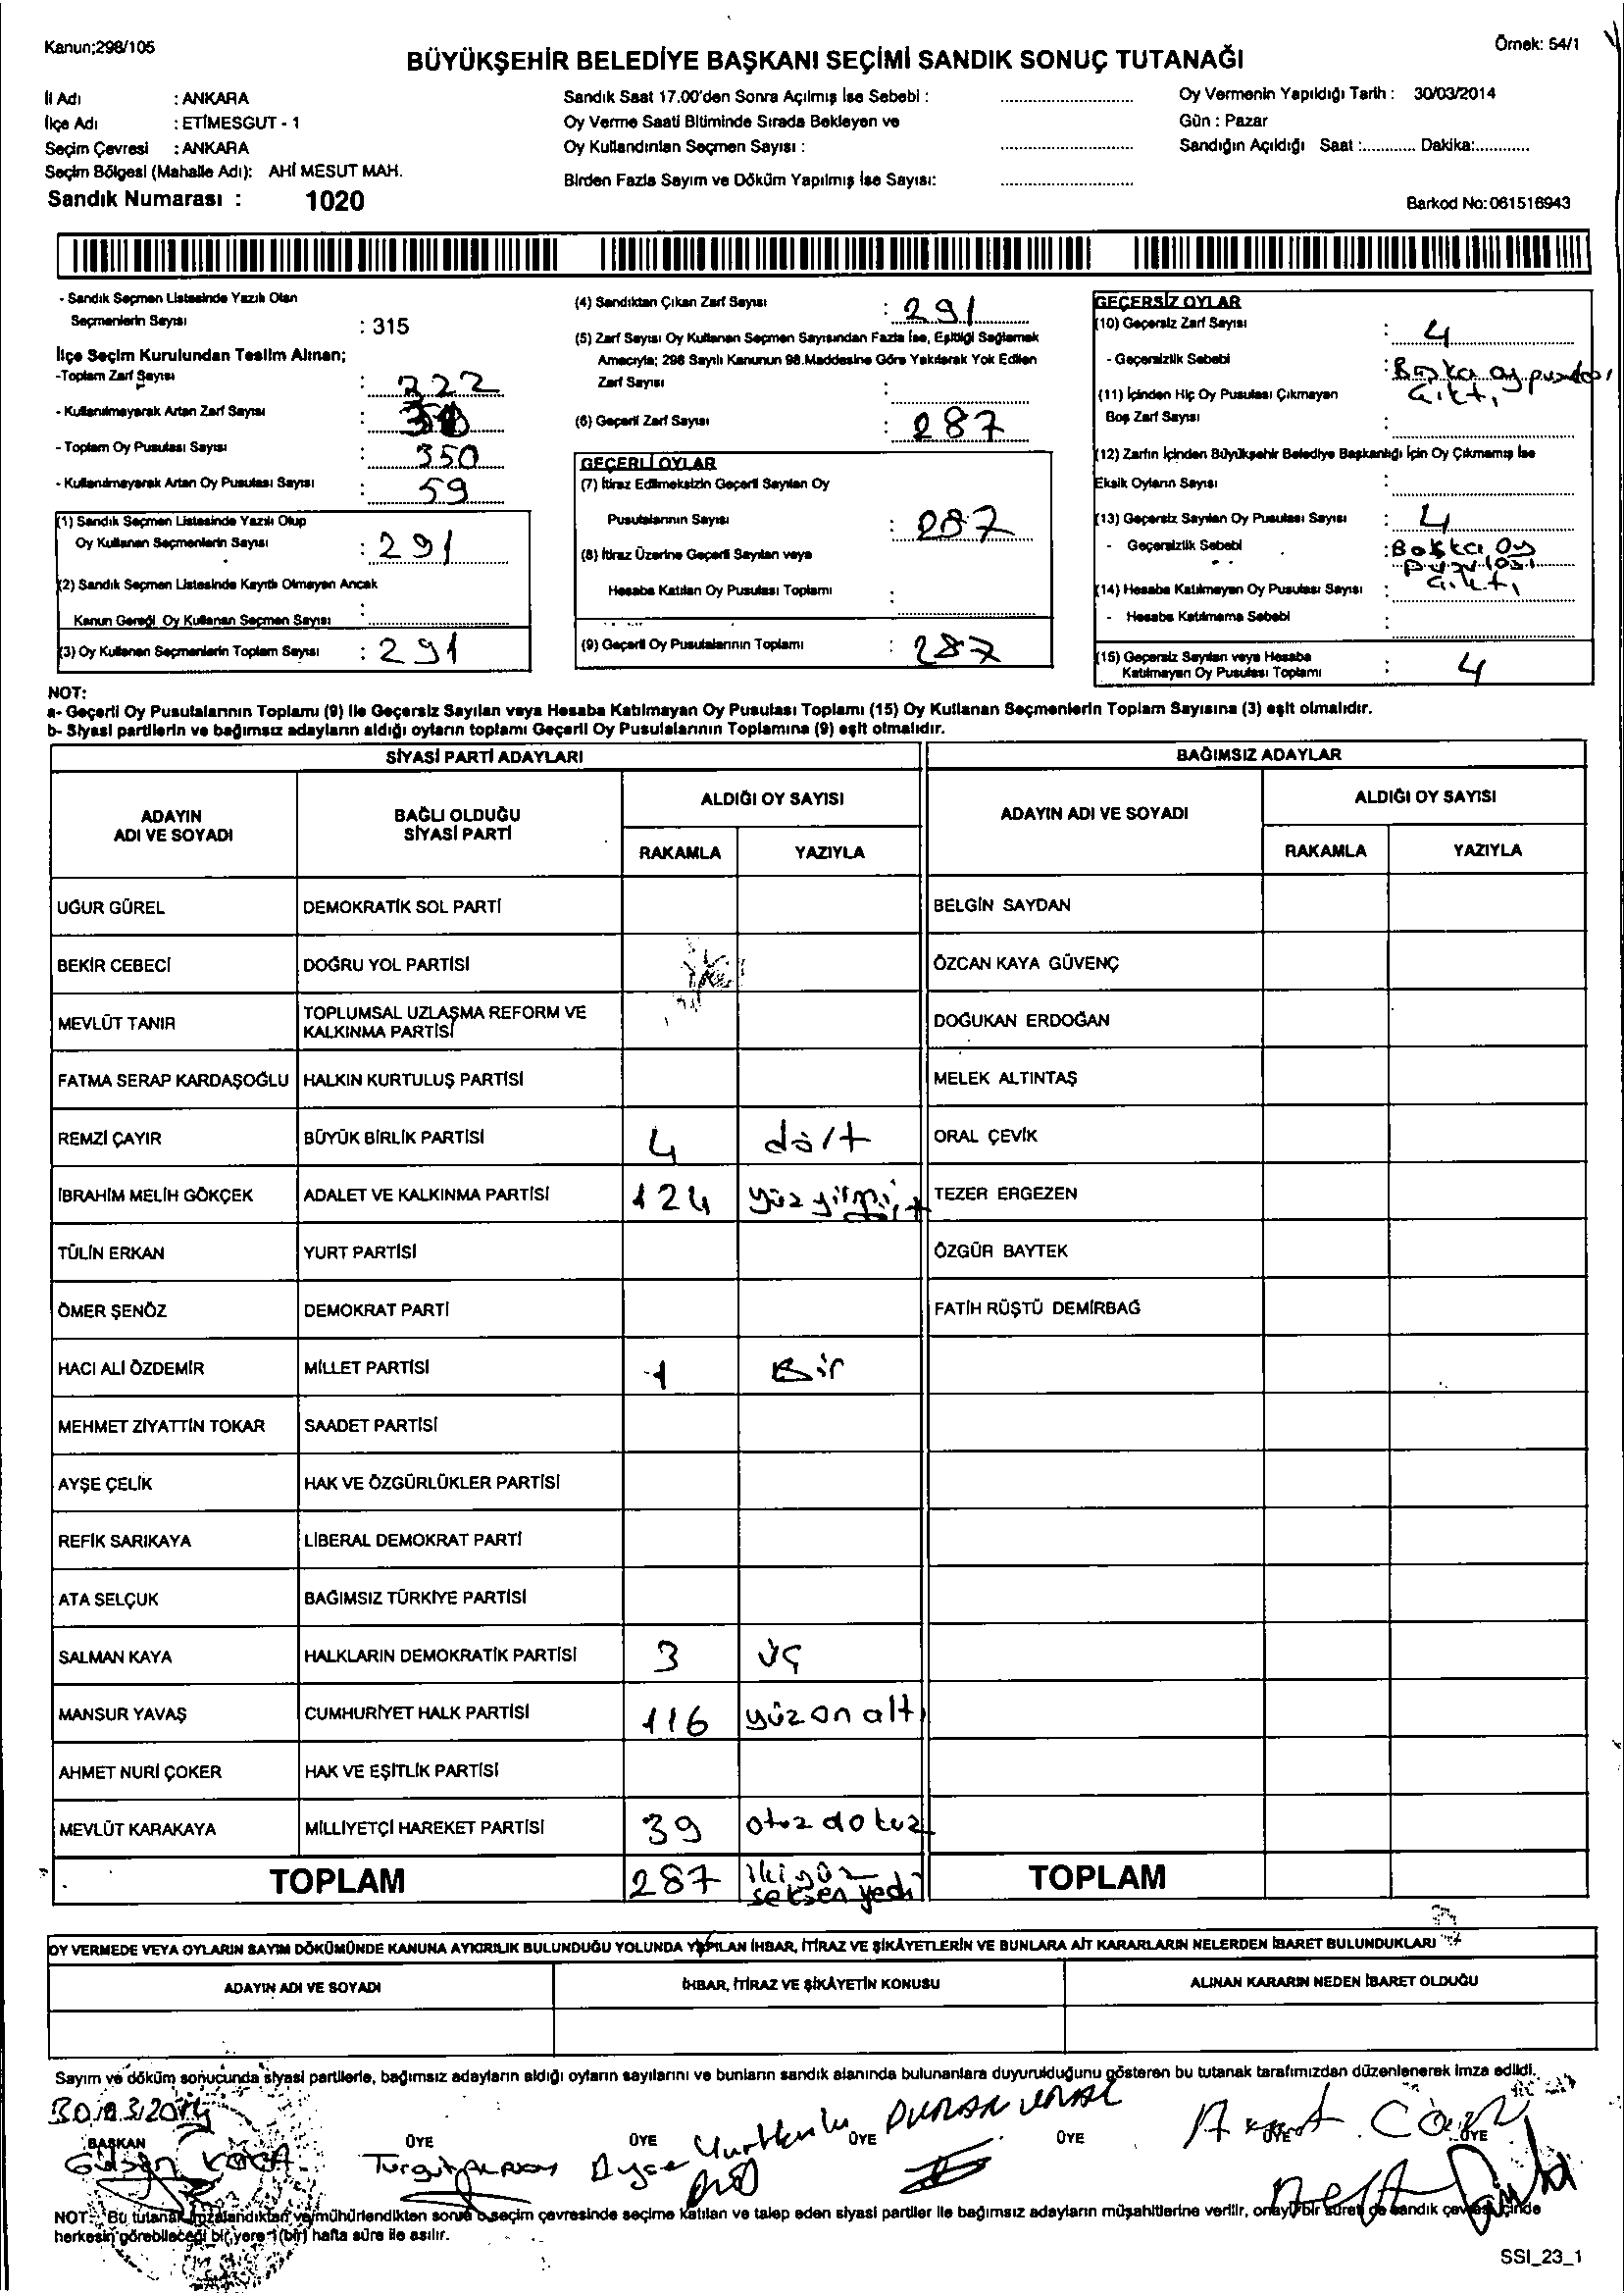 Kanun;298/105
Örnek: 54/1
BÜYÜKŞEHİR BELEDİYE BAŞKANI SEÇİMİ SANDIK SONUÇ TUTANAĞI
İl Adı : ANKARA
İlçe Adı : ETİMESGUT - 1
Seçim Çevresi : ANKARA
Seçim Bölgesi (Mahalle Adı): AHİ MESUT MAH.
Sandık Numarası : 1020
Sandık Saat 17.00'den Sonra Açılmış İse Sebebi :
Oy Verme Saati Bitiminde Sırada Bekleyen ve
Oy Kullandırılan Seçmen Sayısı :
Birden Fazla Sayım ve Döküm Yapılmış İse Sayısı:
Oy Vermenin Yapıldığı Tarih : 30/03/2014
Gün : Pazar
Sandığın Açıldığı Saat :............ Dakika:............
Barkod No: 061516943
- Sandık Seçmen Listesinde Yazılı Olan
Seçmenlerin Sayısı : 315
İlçe Seçim Kurulundan Teslim Alınan;
-Toplam Zarf Sayısı : 322
- Kullanılmayarak Artan Zarf Sayısı :
- Toplam Oy Pusulası Sayısı : 350
- Kullanılmayarak Artan Oy Pusulası Sayısı : 59
(1) Sandık Seçmen Listesinde Yazılı Olup
Oy Kullanan Seçmenlerin Sayısı : 291
(2) Sandık Seçmen Listesinde Kayıtlı Olmayan Ancak
Kanun Gereği Oy Kullanan Seçmen Sayısı :
(3) Oy Kullanan Seçmenlerin Toplam Sayısı : 291
(4) Sandıktan Çıkan Zarf Sayısı : 291
(5) Zarf Sayısı Oy Kullanan Seçmen Sayısından Fazla İse, Eşitliği Sağlamak
Amacıyla; 298 Sayılı Kanunun 98.Maddesine Göre Yakılarak Yok Edilen
Zarf Sayısı :
(6) Geçerli Zarf Sayısı : 287
GEÇERLİ OYLAR
(7) İtiraz Edilmeksizin Geçerli Sayılan Oy
Pusulalarının Sayısı : 287
(8) İtiraz Üzerine Geçerli Sayılan veya
Hesaba Katılan Oy Pusulası Toplamı :
(9) Geçerli Oy Pusulalarının Toplamı : 287
GEÇERSİZ OYLAR
(10) Geçersiz Zarf Sayısı : 4
- Geçersizlik Sebebi : Başka oy pusulası
çıktı
(11) İçinden Hiç Oy Pusulası Çıkmayan
Boş Zarf Sayısı :
(12) Zarfın İçinden Büyükşehir Belediye Başkanlığı İçin Oy Çıkmamış İse
Eksik Oyların Sayısı :
(13) Geçersiz Sayılan Oy Pusulası Sayısı : 4
- Geçersizlik Sebebi : Başka Oy
pusulası
çıktı
(14) Hesaba Katılmayan Oy Pusulası Sayısı :
- Hesaba Katılmama Sebebi :
(15) Geçersiz Sayılan veya Hesaba
Katılmayan Oy Pusulası Toplamı : 4
NOT:
a- Geçerli Oy Pusulalarının Toplamı (9) ile Geçersiz Sayılan veya Hesaba Katılmayan Oy Pusulası Toplamı (15) Oy Kullanan Seçmenlerin Toplam Sayısına (3) eşit olmalıdır.
b- Siyasi partilerin ve bağımsız adayların aldığı oyların toplamı Geçerli Oy Pusulalarının Toplamına (9) eşit olmalıdır.
SİYASİ PARTİ ADAYLARI
BAĞIMSIZ ADAYLAR
ADAYIN
ADI VE SOYADI
BAĞLI OLDUĞU
SİYASİ PARTİ
ALDIĞI OY SAYISI
RAKAMLA YAZIYLA
ADAYIN ADI VE SOYADI
ALDIĞI OY SAYISI
RAKAMLA YAZIYLA
UĞUR GÜREL DEMOKRATİK SOL PARTİ BELGİN SAYDAN
BEKİR CEBECİ DOĞRU YOL PARTİSİ ÖZCAN KAYA GÜVENÇ
MEVLÜT TANIR TOPLUMSAL UZLAŞMA REFORM VE
KALKINMA PARTİSİ DOĞUKAN ERDOĞAN
FATMA SERAP KARDAŞOĞLU HALKIN KURTULUŞ PARTİSİ MELEK ALTINTAŞ
REMZİ ÇAYIR BÜYÜK BİRLİK PARTİSİ 4 dört ORAL ÇEVİK
İBRAHİM MELİH GÖKÇEK ADALET VE KALKINMA PARTİSİ 124 yüz yirmi TEZER ERGEZEN
TÜLİN ERKAN YURT PARTİSİ ÖZGÜR BAYTEK
ÖMER ŞENÖZ DEMOKRAT PARTİ FATİH RÜŞTÜ DEMİRBAĞ
HACI ALİ ÖZDEMİR MİLLET PARTİSİ 1 Bir
MEHMET ZİYATTİN TOKAR SAADET PARTİSİ
AYŞE ÇELİK HAK VE ÖZGÜRLÜKLER PARTİSİ
REFİK SARIKAYA LİBERAL DEMOKRAT PARTİ
ATA SELÇUK BAĞIMSIZ TÜRKİYE PARTİSİ
SALMAN KAYA HALKLARIN DEMOKRATİK PARTİSİ 3 üç
MANSUR YAVAŞ CUMHURİYET HALK PARTİSİ 116 yüz on altı
AHMET NURİ ÇOKER HAK VE EŞİTLİK PARTİSİ
MEVLÜT KARAKAYA MİLLİYETÇİ HAREKET PARTİSİ 39 otuz dokuz
TOPLAM 287 ikiyüz
seksen yedi TOPLAM
OY VERMEDE VEYA OYLARIN SAYIM DÖKÜMÜNDE KANUNA AYKIRILIK BULUNDUĞU YOLUNDA YAPILAN İHBAR, İTİRAZ VE ŞİKÂYETLERİN VE BUNLARA AİT KARARLARIN NELERDEN İBARET BULUNDUKLARI
ADAYIN ADI VE SOYADI İHBAR, İTİRAZ VE ŞİKÂYETİN KONUSU ALINAN KARARIN NEDEN İBARET OLDUĞU
Sayım ve döküm sonucunda siyasi partilerle, bağımsız adayların aldığı oyların sayılarını ve bunların sandık alanında bulunanlara duyurulduğunu gösteren bu tutanak tarafımızdan düzenlenerek imza edildi.
30.03.2014
BAŞKAN ÜYE ÜYE ÜYE ÜYE ÜYE ÜYE
NOT: Bu tutanak imzalandıktan ve mühürlendikten sonra o seçim çevresinde seçime katılan ve talep eden siyasi partiler ile bağımsız adayların müşahitlerine verilir, onaylı bir sureti de sandık çevresi içinde
herkesin görebileceği bir yere 1 (bir) hafta süre ile asılır.
SSI_23_1